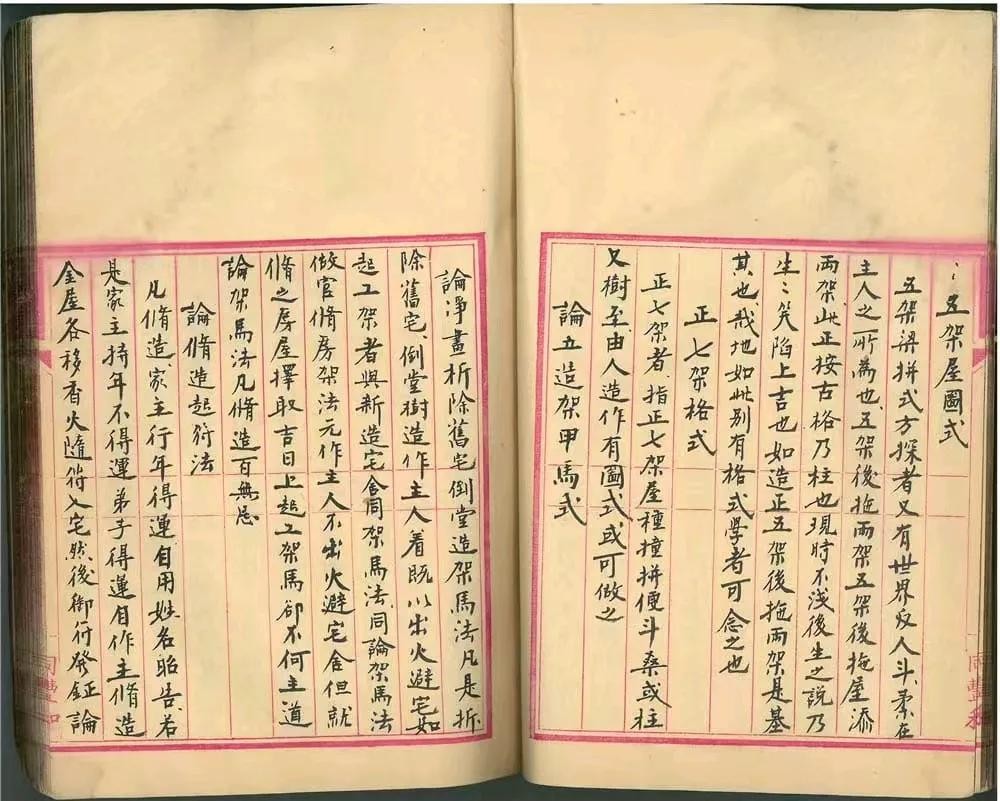 五架屋圖式
五架梁拼式方探者又有世界反人斗、柰在
主人之所為也、五架後拖兩架五架後拖屋添
兩架、此正按古格乃柱也、現時不淺後生之說乃
生〻笑陷上吉也如造正五架後拖兩架是基
其也、戒地如此别有格式學者可念之也
正七架格式
正七架者、指正七架屋種撞拼便斗桑或柱
又樹至、由人造作有圖式或可做之
論立造架甲馬式
論淨畫析除舊宅倒堂造架馬法凡是折
除舊宅、倒堂樹造作主人着既以出火避宅如
起工架者與新造宅舍同架馬法、同論架馬法
做官脩房架法元作主人不出火避宅舍但就
脩之房屋擇取吉日上起工架馬卻不何主道
論架馬法凡脩造百無忌
論脩造起符法
凡脩造、家主行年得運自用姓名昭告、若
是家主持年不得運弟子得運自作主脩造
金屋各移香火隨俏入宅、然後御符發鉦論
同豐和